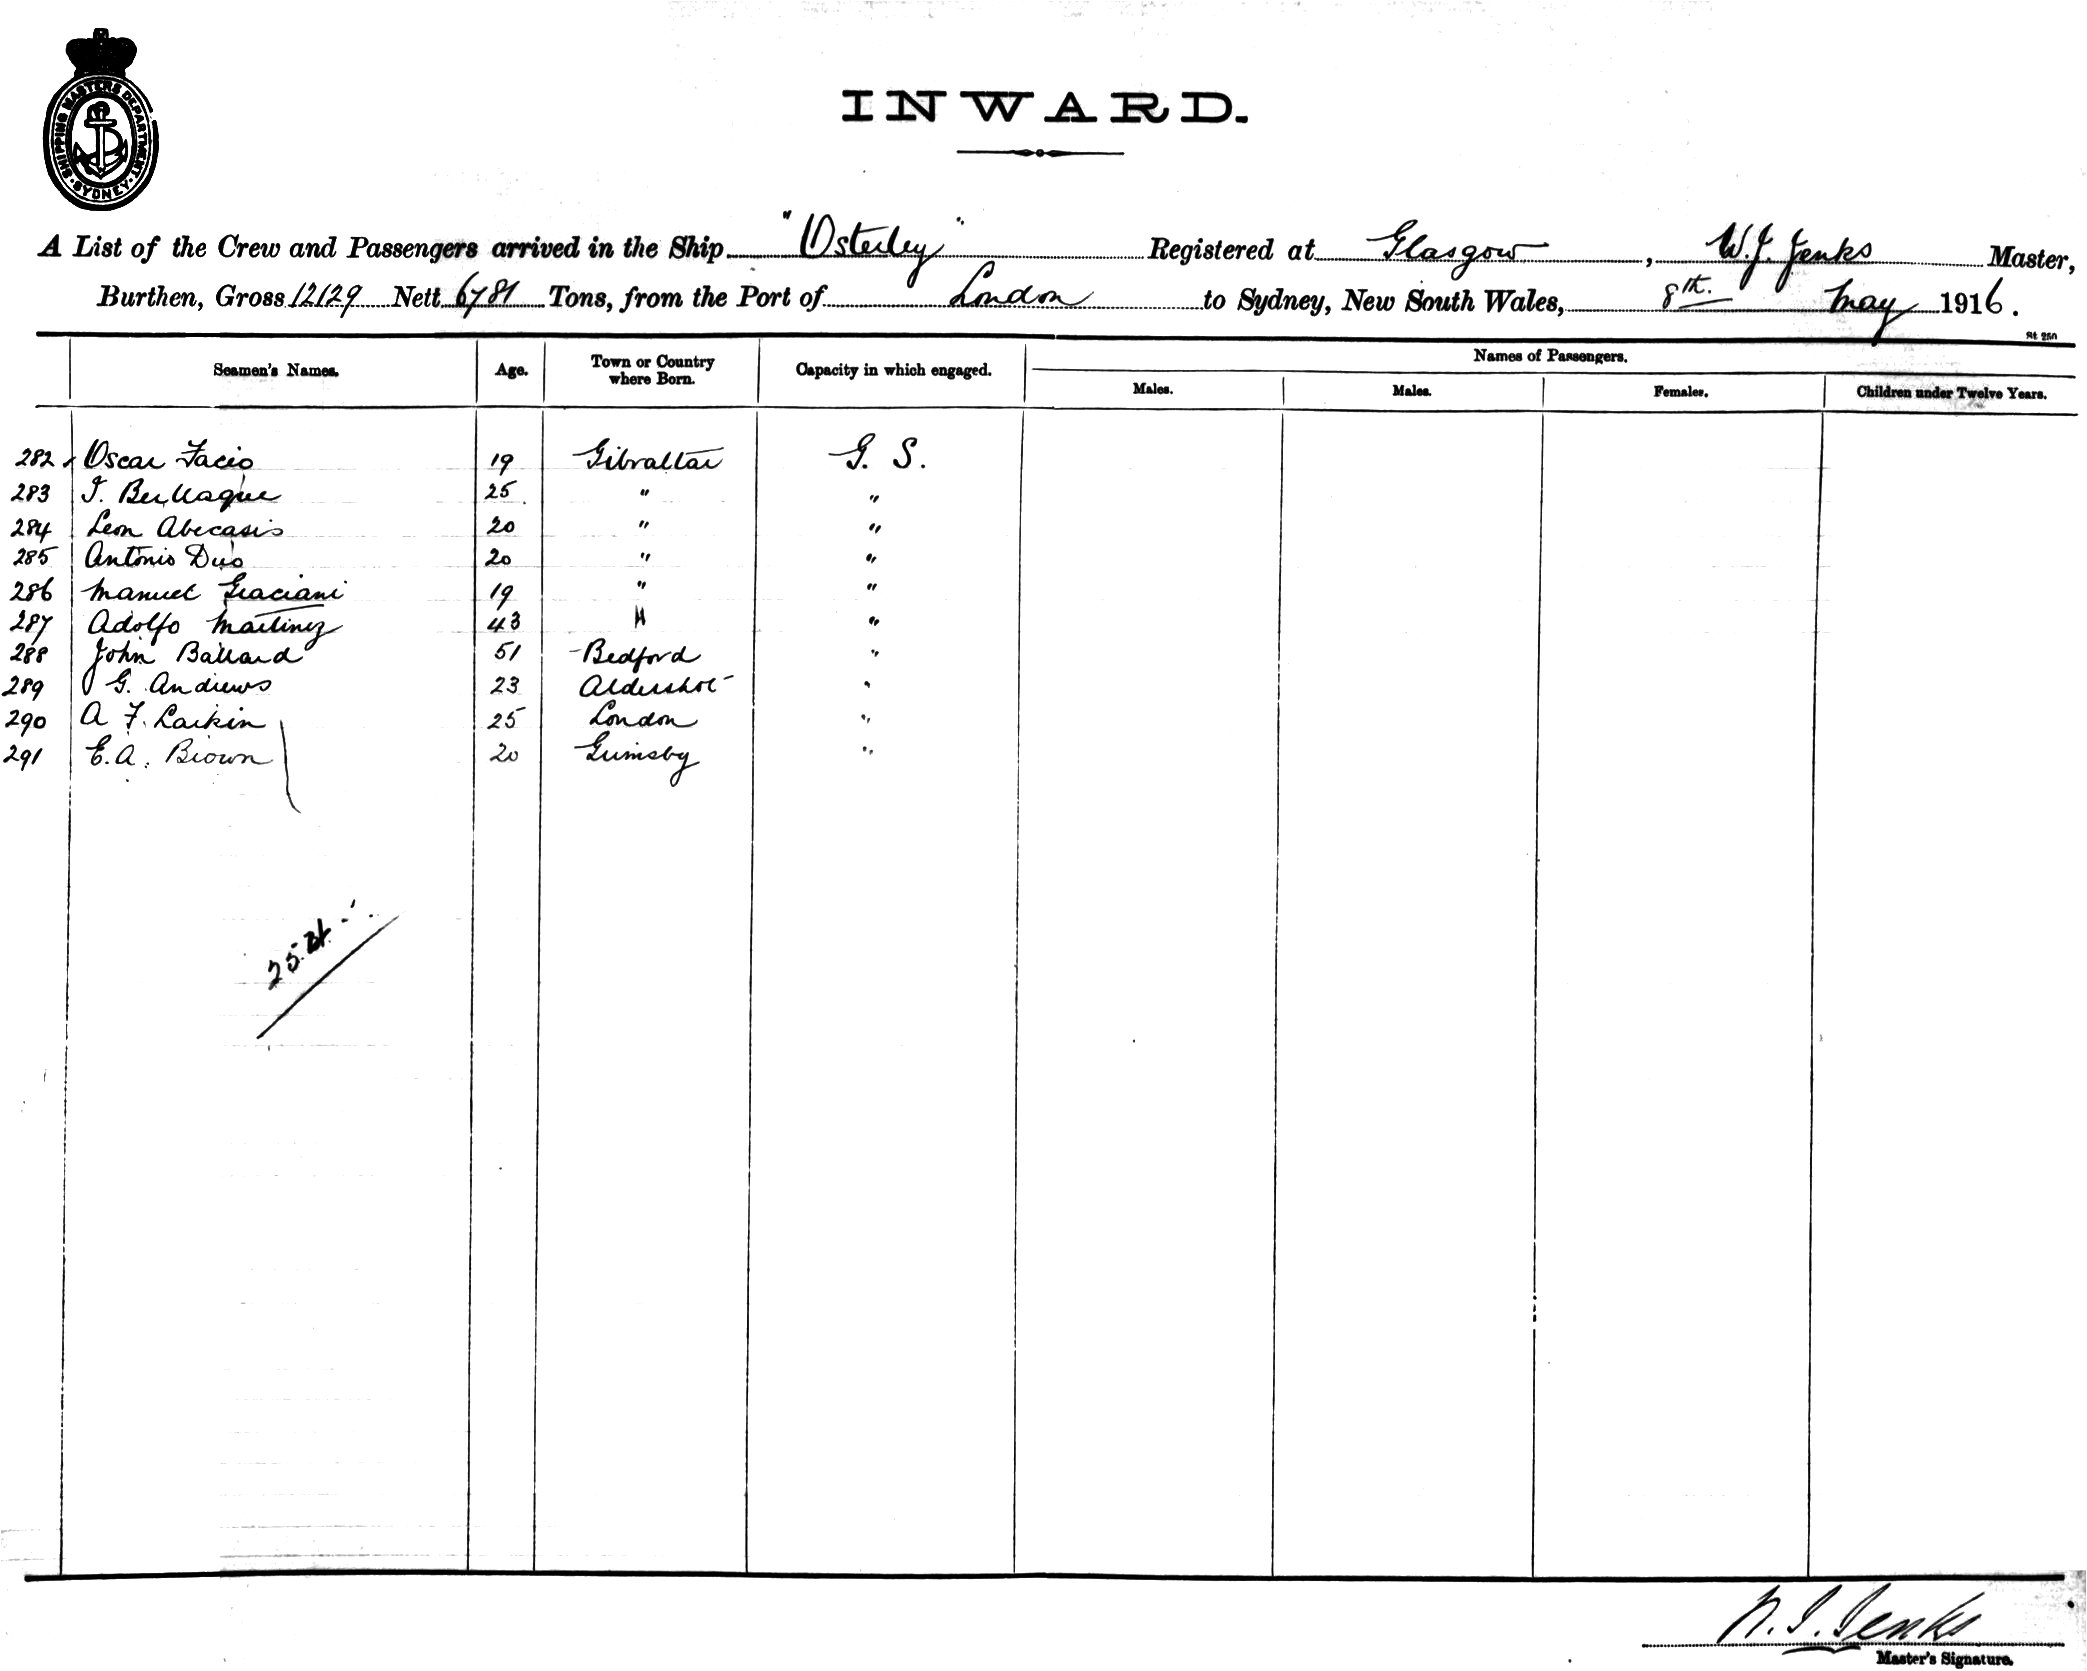 SHIPPING MASTERS DEPARTMENT SYDNEY
INWARD.
A List of the Crew and Passengers arrived in the Ship "Osterley" Registered at Glasgow, W.J. Jenks Master,
Burthen, Gross 12129 Nett 6781 Tons, from the Port of London to Sydney, New South Wales, 8th. May 1916.
St 250
Names of Passengers.
Seamen's Names. Age. Town or Country where Born. Capacity in which engaged. Males. Males. Females. Children under Twelve Years.
282 Oscar Facio 19 Gibraltar G. S.
283 J. Berllaque 25 " "
284 Leon Abecasis 20 " "
285 Antonio Duo 20 " "
286 Manuel Graciani 19 " "
287 Adolfo Martinez 43 " "
288 John Ballard 51 Bedford "
289 G. Andrews 23 Aldershot "
290 A F. Larkin 25 London "
291 E.A. Brown 20 Grimsby "
W.J. Jenks
Master's Signature.